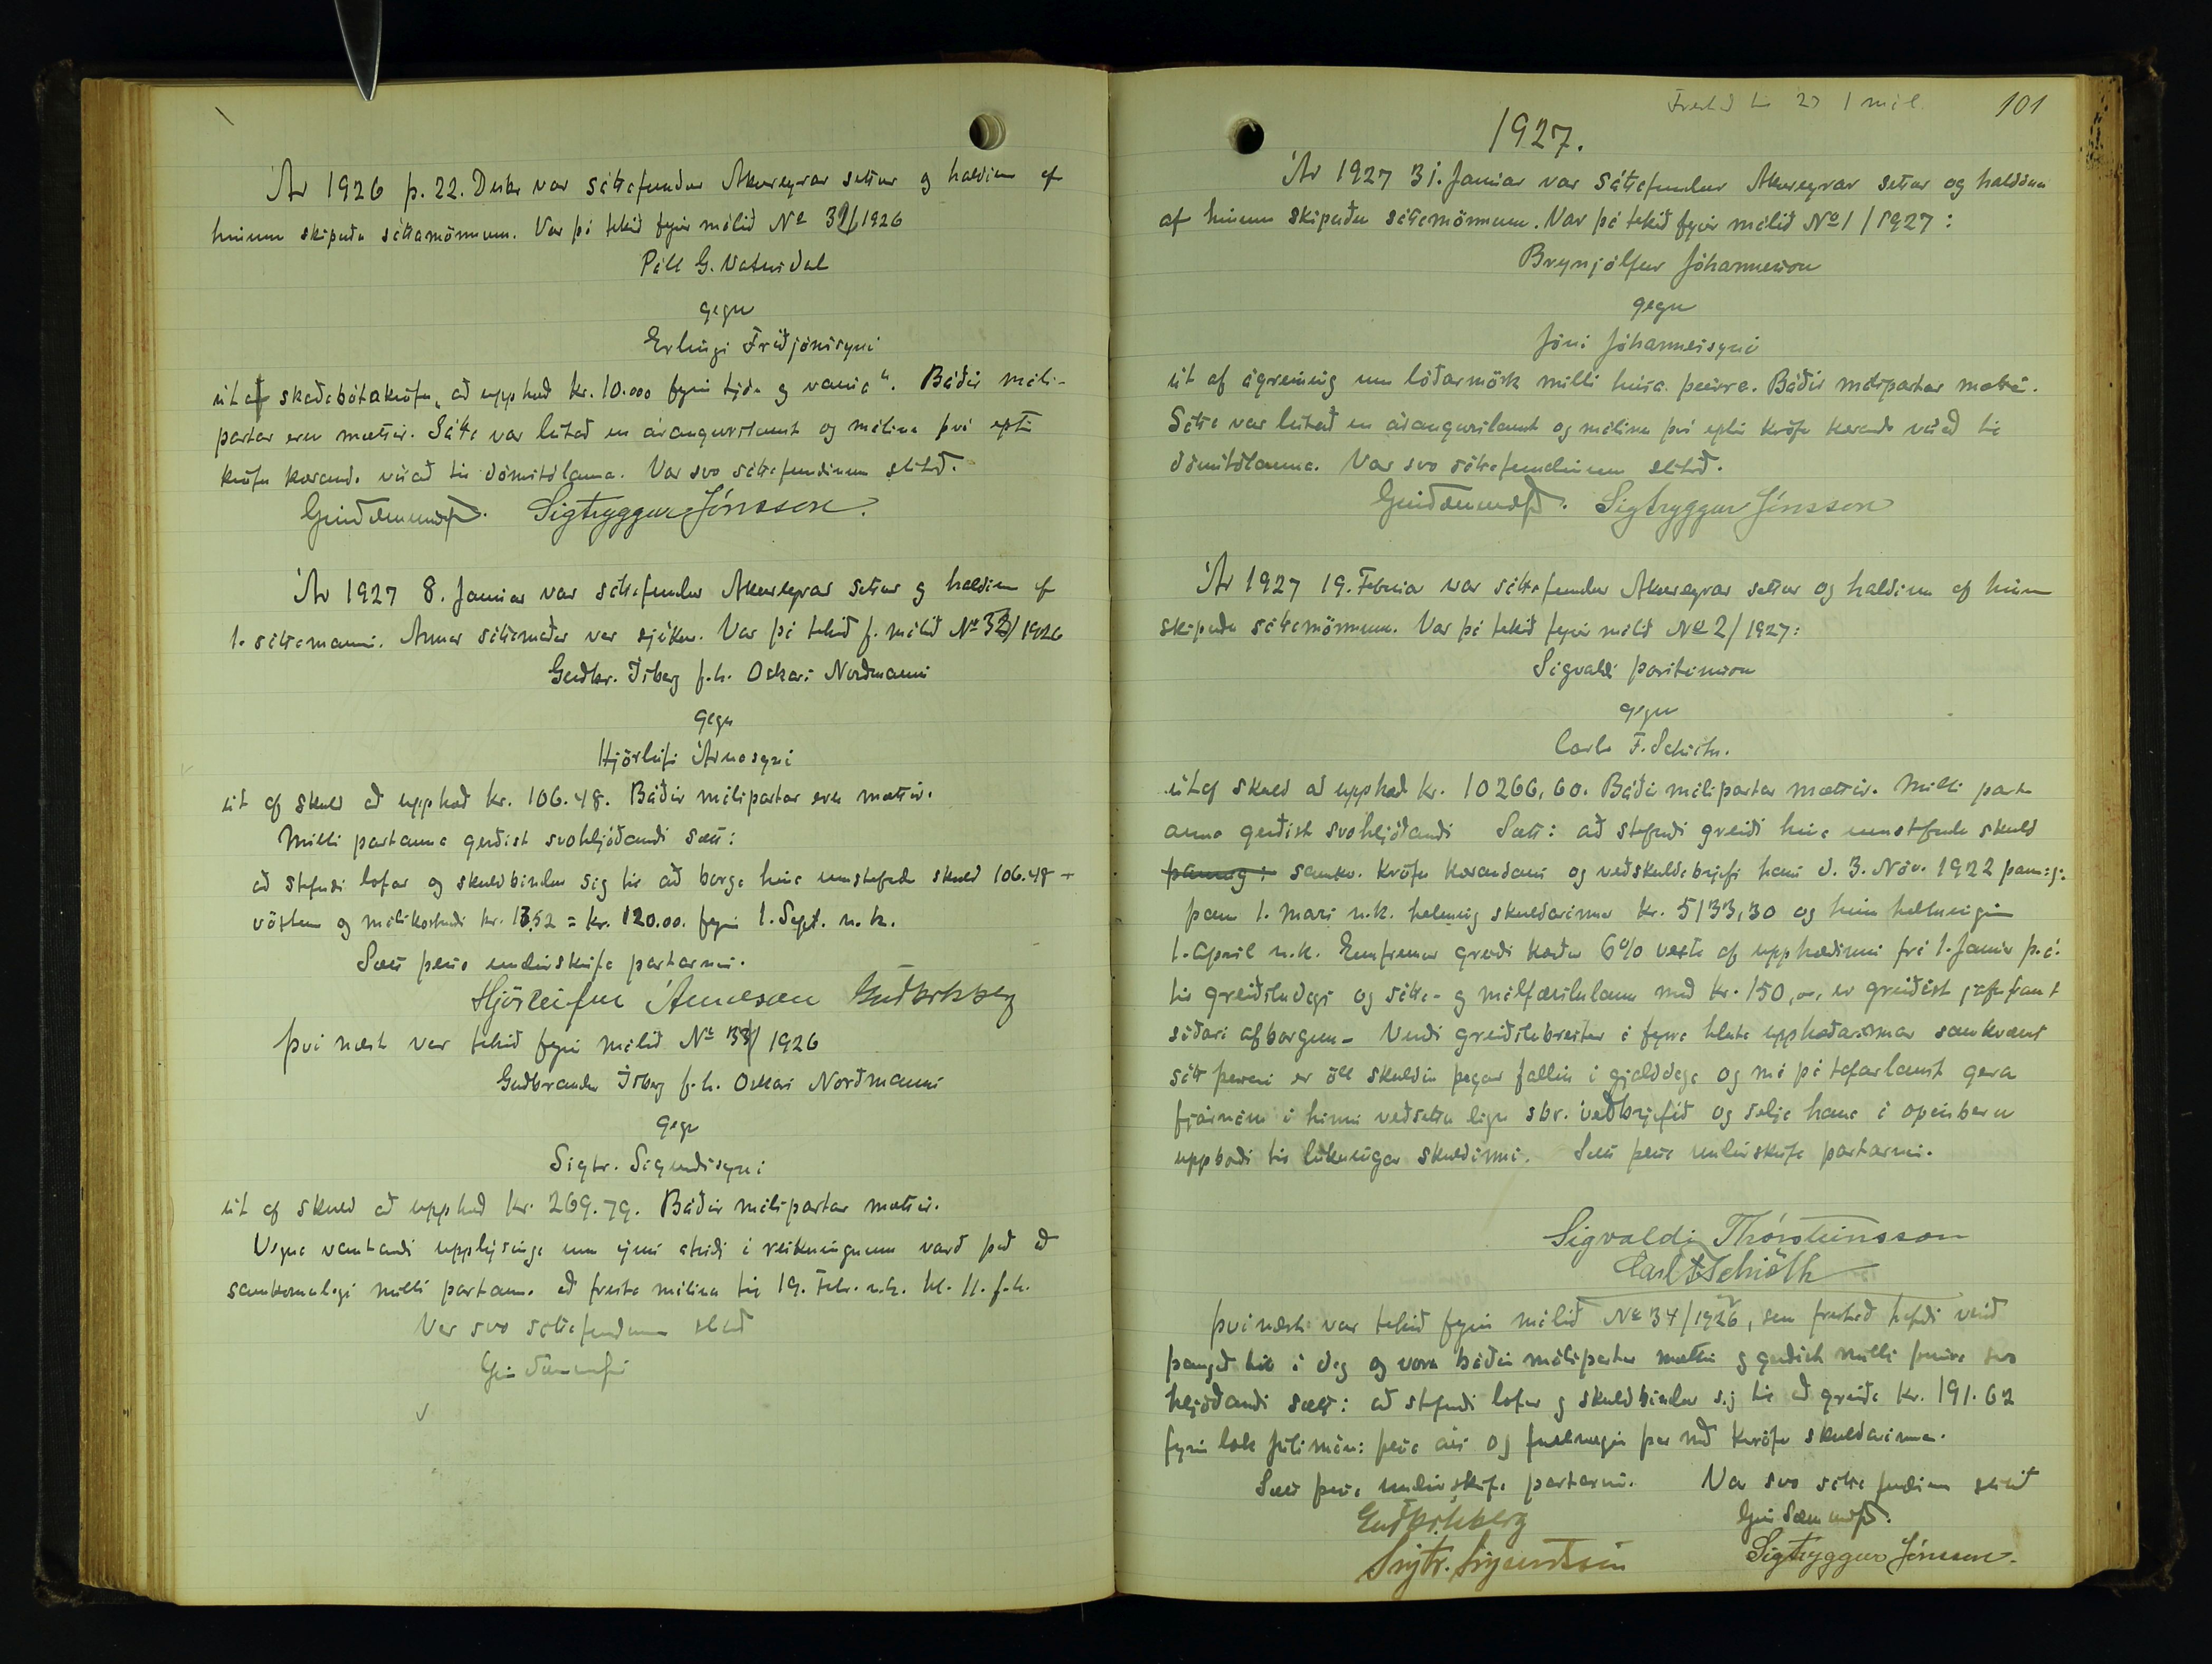 Ár 1926 þ. 22. Desbr var sáttafundur Akureyrar settur og haldinn af
hinum skipuðu sáttamönnum. Var þá tekið fyrir málið No 32/1926
Páll G. Vatnsdal
gegn
Erlingi Friðjónssyni
út af skaðabótakröfu, að upphæð kr. 10.000 fyrir
og vansa". Báðir máls-
partar eru mættir. Sátta var leitað en árangurslaust og málinu því eptir
kröfu kæranda vísað til dómstólanna. Var svo sáttafundinum slitið.
Sigtryggur Jónsson.
Ár 1927 8. Janúar var sáttafundur Akureyrar settur og haldinn af
1. sáttamanni. Annar sáttamaður var sjúkur. Var þá tekið f. málið No 33/1926
Guðbr. Ísberg f.h. Óskars Norðmanns
gegn
Hjörleifi Árnasyni
út af skuld að upphæð kr. 106.48. Báðir málspartar eru mættir.
Milli partanna gerðist svohljóðandi sætt:
að stefndi lofar og skuldbindur sig til að borga hina umstefndu skuld 106.48 +
vöxtum og málskostnaði kr. 13.52 = kr. 120.00. fyrir 1. Sept. n.k.
Sætt þessa undirskrifa partarnir.
Hjörleifur Árnason Guðbr Ísberg
því næst var tekið fyrir málið No 34/1926
Guðbrandur Ísberg f.h. Óskars Norðmanns
gegn
Sigtr. Sigurðssyni
út af skuld að upphæð kr. 269.79. Báðir málspartar mættir.
Vegna vantandi upplýsinga um ýms atriði í reikningnum varð það að
samkomulagi milli partanna að fresta málinu til 19. Febr. n.k. kl. 11. f.h.
Var svo sáttafundinum slitið
101
1927.
Ár 1927 31. Janúar var sáttafundur Akureyrar settur og haldinn
af hinum skipuðu sáttamönnum. Var þá tekið fyrir málið No 1/1927:
Brynjólfur Jóhannesson
gegn
Jóni Jóhannessyni
út af ágreining um lóðarmörk milli húsa þeirra. Báðir málspartar mættu.
Sátta var leitað en árangurslaust og málinu því eptir kröfu kæranda vísað til
dómstólanna. Var svo sáttafundinum slitið.
Sigtryggur Jónsson
Ár 1927 19. Febrúar var sáttafundur Akureyrar settur og haldinn af hinum
skipuðu sáttamönnum. Var þá tekið fyrir málið No 2/1927:
Sigvaldi Þorsteinsson
gegn
Carli F. Schiöth.
út af skuld að upphæð kr. 10266,60. Báðir málspartar mættir. Milli part-
anna gerðist svohljóðandi Sætt: að stefndi greiði hina umstefndu skuld
þannig: samkv. kröfu kærandans og veðskuldabrjefi hans d. 3. Nóv. 1922 þannig:
þann 1. mars n.k. helming skuldarinnar kr. 5133,30 og hinn helminginn
1. apríl n.k. Ennfremur greiði kærður 6% vexti af upphæðinni frá 1. Janúar þ.á.
til greiðsludags og sátta- og málfærslulaun með kr. 150,00, er greiðist jafnframt
síðari afborgun. Verði greiðslubrestur á fyrra hluta upphæðarinnar samkvæmt
sátt þessari er öll skuldin þegar fallin í gjalddaga og má þá tafarlaust gera
fjárnám í hinni veðsettu eign sbr. veðbrjefið og selja hana á opinberu
uppboði til lúkningar skuldinni. Sætt þessa undirskrifa partarnir.
Sigvaldi Thorsteinsson
Carl F Schiöth
því næst var tekið fyrir málið No 34/1926, sem frestað hafði verið
þangað til í dag og voru báðir málspartar mættir og gerðist milli þeirra svo
hljóðandi sætt: að stefndi lofar og skuldbindur sig til að greiða kr. 191.62
fyrir lok Júlímán: þessa árs og fullnægir þar með kröfu skuldarinnar.
Sætt þessa undirskrifa partarnir. Var svo sáttafundinum slitið
Guðbr Ísberg
Sigtr. Sigurðsson Sigtryggur Jónsson.